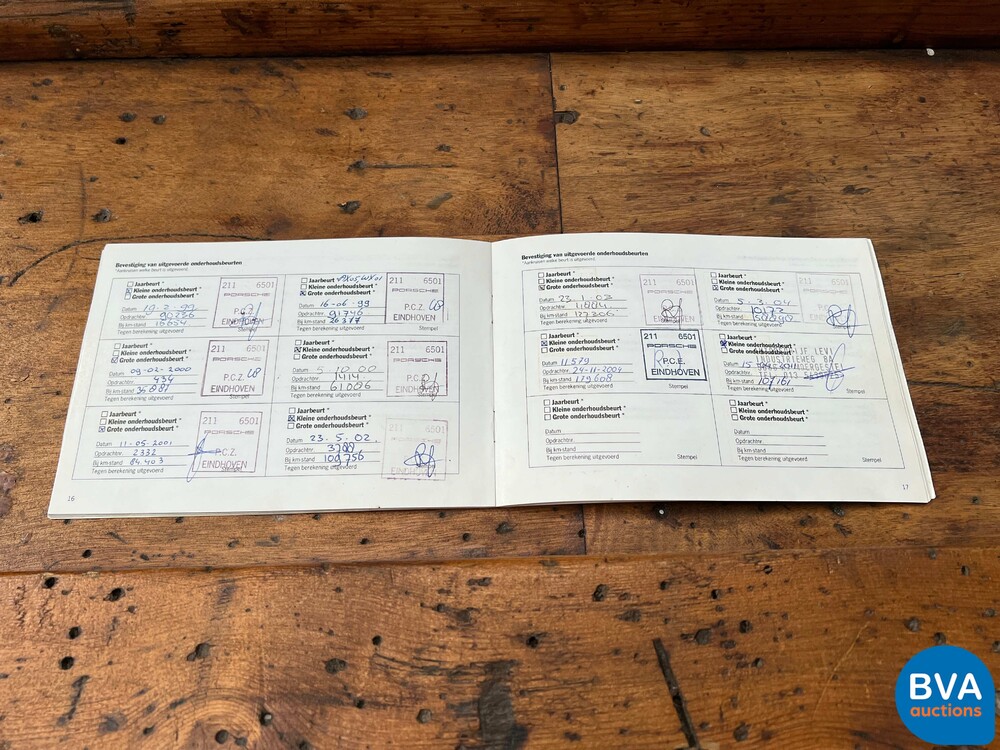 Bevestiging van uitgevoerde onderhoudsbeurten
*Aankruisen welke beurt is uitgevoerd
Jaarbeurt *
Kleine onderhoudsbeurt *
Grote onderhoudsbeurt *
Datum 19-2-99
Opdrachtnr. 90236
Bij km-stand
Tegen berekening uitgevoerd
Stempel
211 6501
PORSCHE
P.C.Z.
EINDHOVEN
Jaarbeurt *
Kleine onderhoudsbeurt *
Grote onderhoudsbeurt *
Datum 16-06-99
Opdrachtnr. 91746
Bij km-stand 26317
Tegen berekening uitgevoerd
Stempel
211 6501
PORSCHE
P.C.Z.
EINDHOVEN
Jaarbeurt *
Kleine onderhoudsbeurt *
Grote onderhoudsbeurt *
Datum 09-02-2000
Opdrachtnr. 434
Bij km-stand
Tegen berekening uitgevoerd
Stempel
211 6501
PORSCHE
P.C.Z.
EINDHOVEN
Jaarbeurt *
Kleine onderhoudsbeurt *
Grote onderhoudsbeurt *
Datum 5-10-00
Opdrachtnr. 1414
Bij km-stand 61006
Tegen berekening uitgevoerd
Stempel
211 6501
PORSCHE
P.C.Z.
EINDHOVEN
Jaarbeurt *
Kleine onderhoudsbeurt *
Grote onderhoudsbeurt *
Datum 11-05-2001
Opdrachtnr. 2332
Bij km-stand 84.403
Tegen berekening uitgevoerd
211 6501
PORSCHE
P.C.Z.
EINDHOVEN
Jaarbeurt *
Kleine onderhoudsbeurt *
Grote onderhoudsbeurt *
Datum 23.5.02
Opdrachtnr.
Bij km-stand 100756
Tegen berekening uitgevoerd
211 6501
PORSCHE
EINDHOVEN
16
Bevestiging van uitgevoerde onderhoudsbeurten
*Aankruisen welke beurt is uitgevoerd
Jaarbeurt *
Kleine onderhoudsbeurt *
Grote onderhoudsbeurt *
Datum 23-1-03
Opdrachtnr.
Bij km-stand 127306
Tegen berekening uitgevoerd
Stempel
211 6501
PORSCHE
EINDHOVEN
Jaarbeurt *
Kleine onderhoudsbeurt *
Grote onderhoudsbeurt *
Datum 5-3-04
Opdrachtnr. 10172
Bij km-stand
Tegen berekening uitgevoerd
Stempel
211 6501
Jaarbeurt *
Kleine onderhoudsbeurt *
Grote onderhoudsbeurt *
Datum 11579
Opdrachtnr. 24-11-2009
Bij km-stand 179608
Tegen berekening uitgevoerd
Stempel
211 6501
PORSCHE
P.C.E.
EINDHOVEN
Jaarbeurt *
Kleine onderhoudsbeurt *
Grote onderhoudsbeurt *
Datum
Opdrachtnr.
Bij km-stand
Tegen berekening uitgevoerd
Stempel
LEVI
INDUSTRIEWEG 8A
Jaarbeurt *
Kleine onderhoudsbeurt *
Grote onderhoudsbeurt *
Datum
Opdrachtnr.
Bij km-stand
Tegen berekening uitgevoerd
Stempel
Jaarbeurt *
Kleine onderhoudsbeurt *
Grote onderhoudsbeurt *
Datum
Opdrachtnr.
Bij km-stand
Tegen berekening uitgevoerd
Stempel
17
BVA
auctions